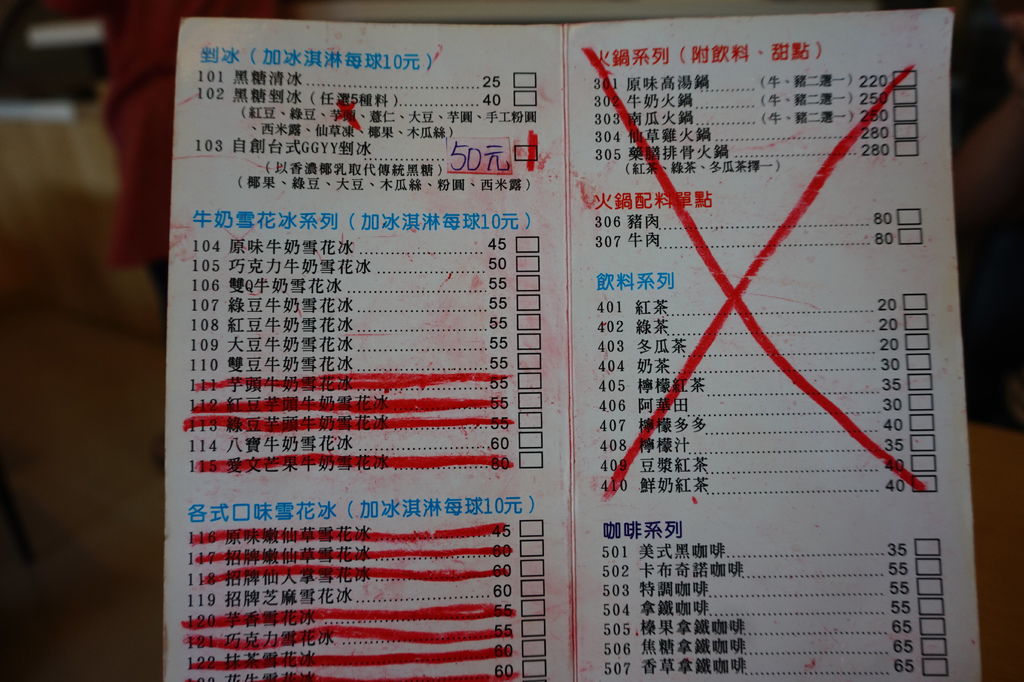 剉冰(加冰淇淋每球10元)
101 黑糖清冰 25
102 黑糖剉冰(任選5種料) 40
(紅豆、綠豆、芋頭、薏仁、大豆、芋圓、手工粉圓
、西米露、仙草凍、椰果、木瓜絲)
103 自創台式GGYY剉冰 50元
(以香濃椰乳取代傳統黑糖)
(椰果、綠豆、大豆、木瓜絲、粉圓、西米露)
牛奶雪花冰系列(加冰淇淋每球10元)
104 原味牛奶雪花冰 45
105 巧克力牛奶雪花冰 50
106 雙Q牛奶雪花冰 55
107 綠豆牛奶雪花冰 55
108 紅豆牛奶雪花冰 55
109 大豆牛奶雪花冰 55
110 雙豆牛奶雪花冰 55
111 芋頭牛奶雪花冰 55
112 紅豆芋頭牛奶雪花冰 55
113 綠豆芋頭牛奶雪花冰 55
114 八寶牛奶雪花冰 60
115 愛文芒果牛奶雪花冰 80
各式口味雪花冰(加冰淇淋每球10元)
116 原味嫩仙草雪花冰 45
117 招牌嫩仙草雪花冰 60
118 招牌仙人掌雪花冰 60
119 招牌芝麻雪花冰 60
120 芋香雪花冰 55
121 巧克力雪花冰 55
122 抹茶雪花冰 60
花生雪花冰 60
火鍋系列(附飲料、甜點)
301 原味高湯鍋 (牛、豬二選一) 220
302 牛奶火鍋 (牛、豬二選一) 250
303 南瓜火鍋 (牛、豬二選一) 250
304 仙草雞火鍋 280
305 藥膳排骨火鍋 280
(紅茶、綠茶、冬瓜茶擇一)
火鍋配料單點
306 豬肉 80
307 牛肉 80
飲料系列
401 紅茶 20
402 綠茶 20
403 冬瓜茶 20
404 奶茶 30
405 檸檬紅茶 35
406 阿華田 30
407 檸檬多多 40
408 檸檬汁 35
409 豆漿紅茶 40
410 鮮奶紅茶 40
咖啡系列
501 美式黑咖啡 35
502 卡布奇諾咖啡 55
503 特調咖啡 55
504 拿鐵咖啡 55
505 榛果拿鐵咖啡 65
506 焦糖拿鐵咖啡 65
507 香草拿鐵咖啡 65